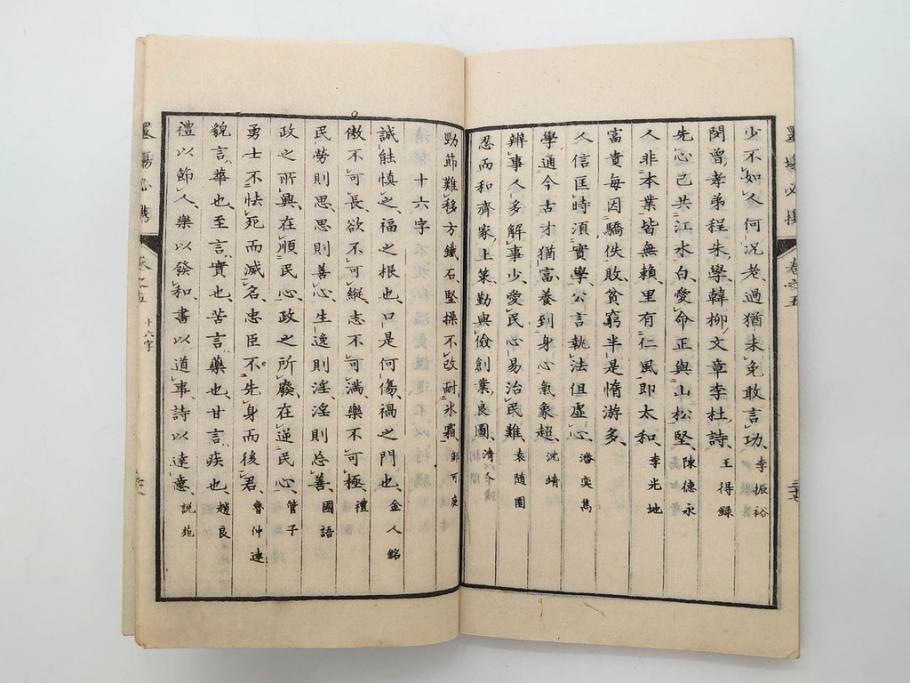 少不如人何況老過猶未免敢言功李振裕
閔曾孝弟程朱學韓柳文章李杜詩王得錄
先心己共江水白愛命正與山松堅陳德永
人非本業皆無賴里有仁風即太和李光地
富貴每因驕佚敗貧窮半是惰游多
人信匡時須實學公言執法但虛心潘奕雋
學通今古才猶富養到身心氣象超沈靖
辦事人多解事少愛民心易治民難袁隨園
忍而和齊家上策勤與儉創業良圖
勁節難移方鐵石堅操不改耐氷霜
十六字
誠能慎之福之根也口是何傷禍之門也金人銘
傲不可長欲不可縱志不可滿樂不可極禮
民勞則思思則善心生逸則淫淫則忘善國語
政之所興在順民心政之所廢在逆民心管子
勇士不怯死而滅名忠臣不先身而後君魯仲連
貌言華也至言實也苦言藥也甘言疾也趙良
禮以節人樂以發和書以道事詩以達意說苑
卷之五
十六字